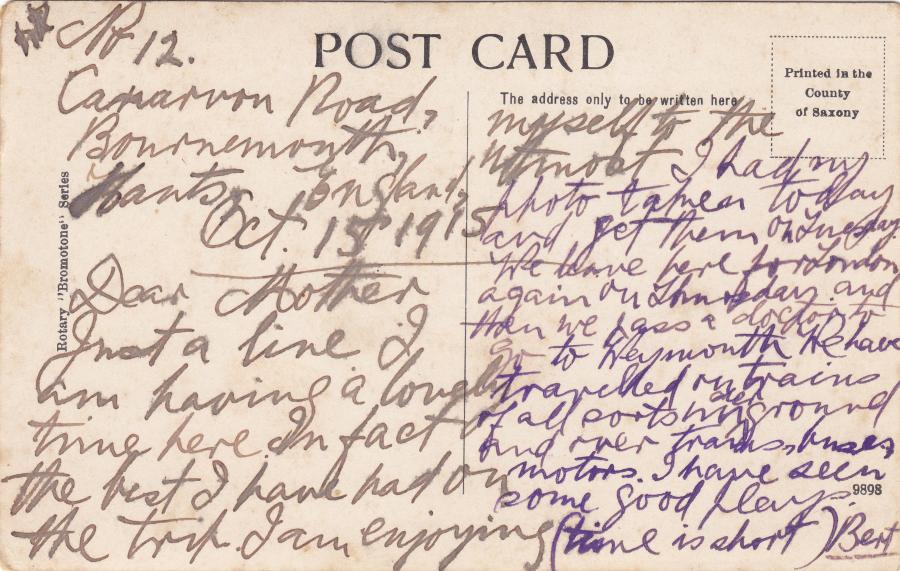 No 12.
Carnarvon Road,
Bournemouth,
Hants, England,
Oct. 15th 1915
Dear Mother
Just a line I
am having a lovely
time here. In fact
the best I have had on
the trip. I am enjoying
POST CARD
The address only to be written here
Printed in the
County
of Saxony
myself to the
utmost I had my
photo taken today
and get them on Tuesday.
We leave here for London
again on Thursday and
then we pass a doctor to
go to Weymouth We have
travelled in trains
of all sorts under ground
and over trams, buses,
motors. I have seen
some good plays.
(time is short) Bert
9898
Rotary "Bromotone" Series